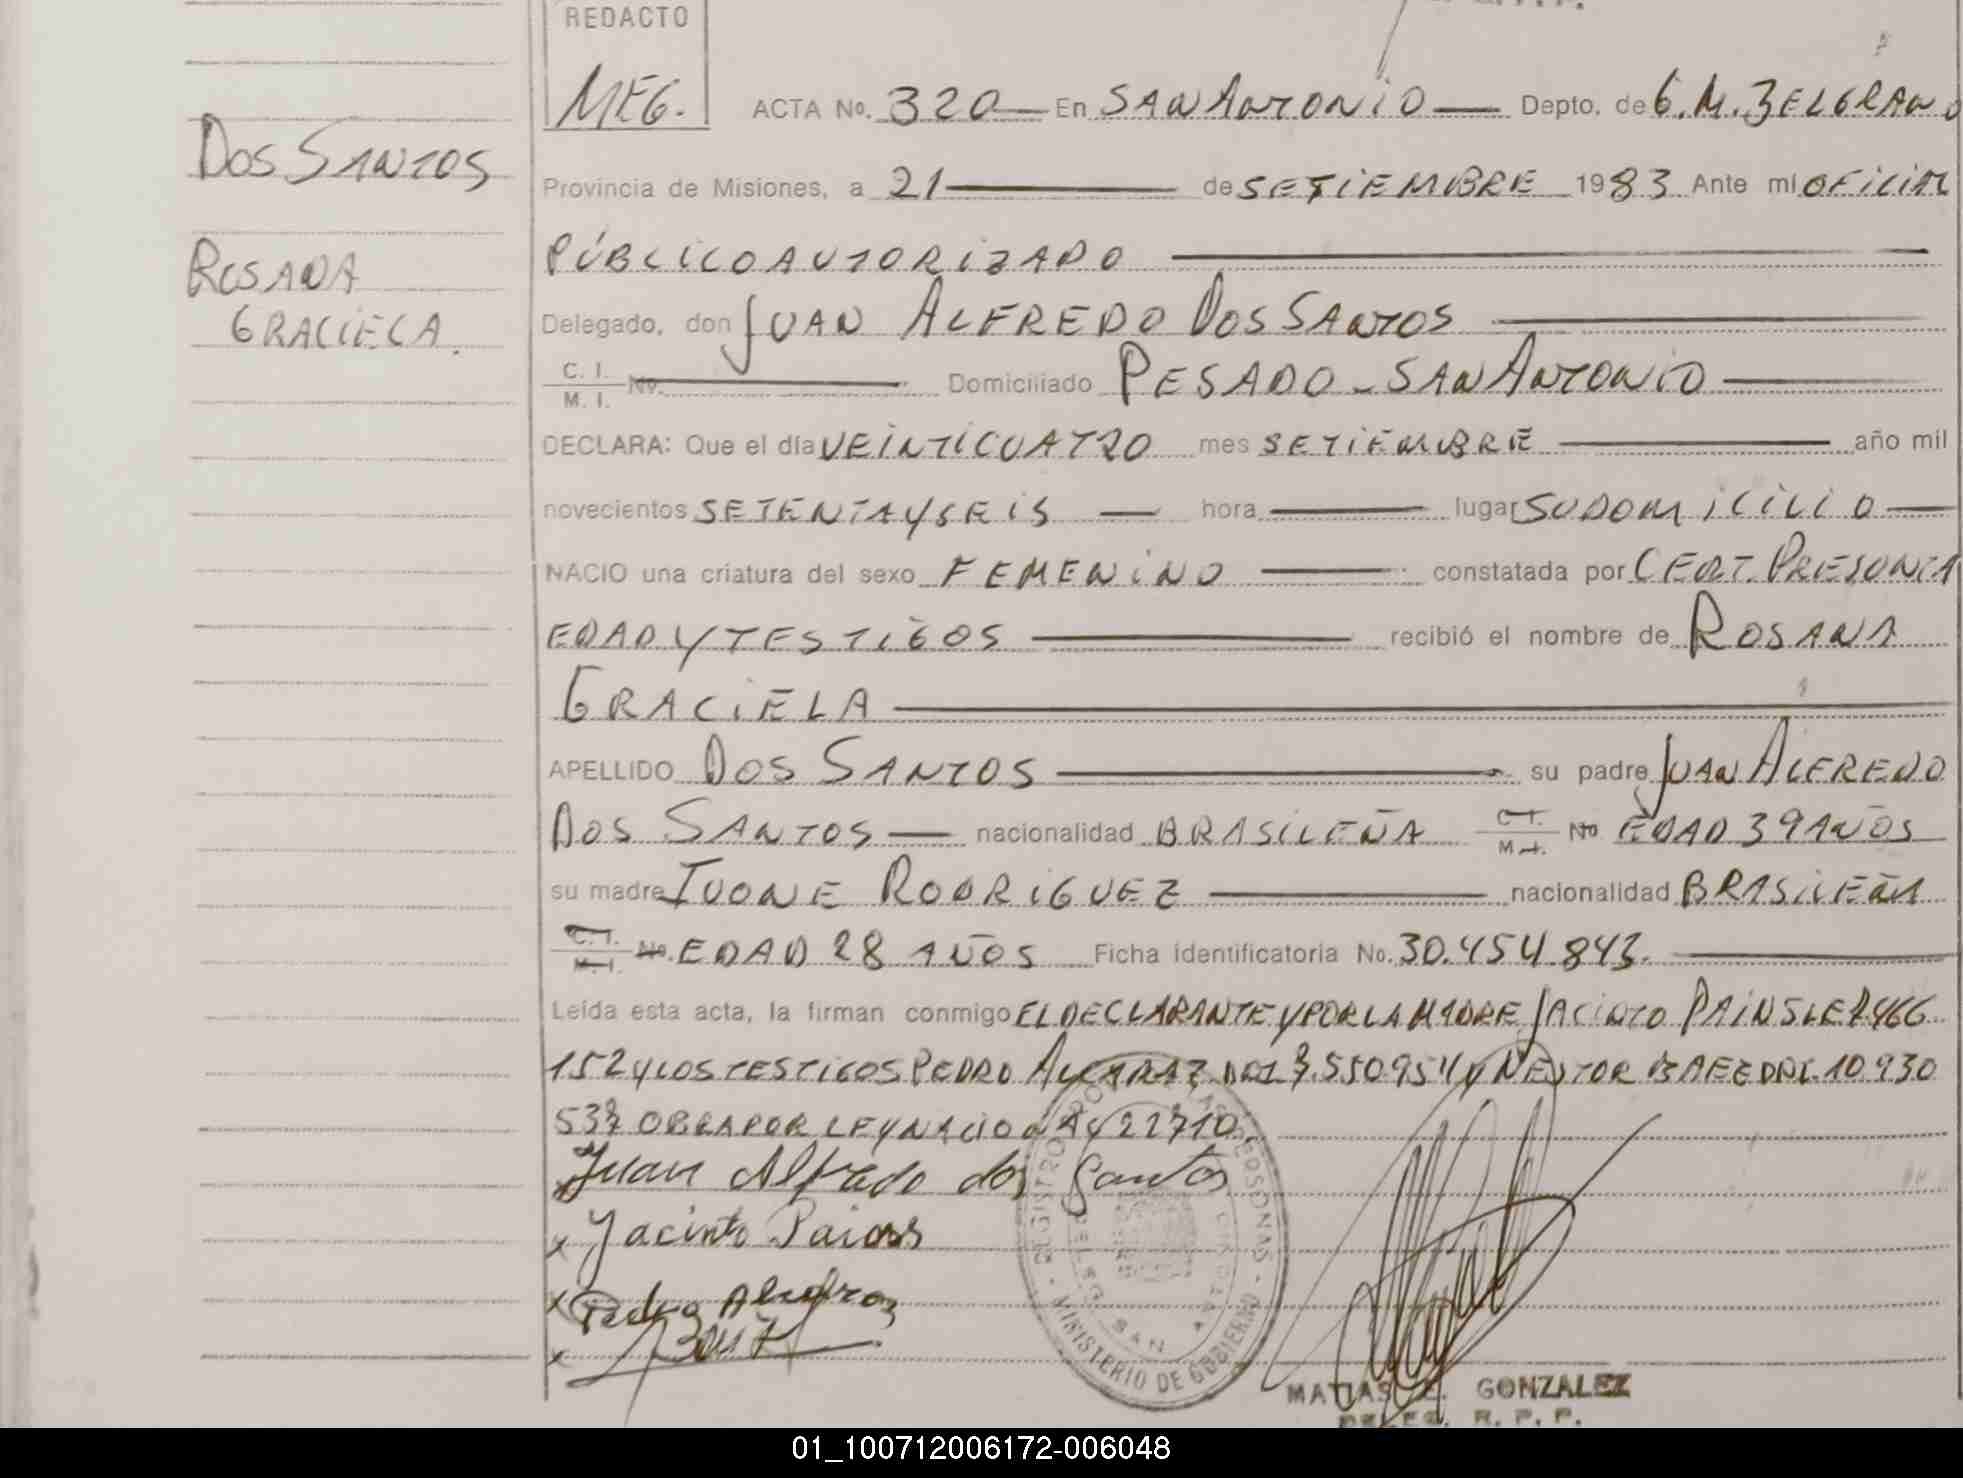 REDACTO
MEG.
ACTA No. 320 En SAN ANTONIO Depto. de G. M. BELGRANO
DOS SANTOS
Provincia de Misiones, a 21 de SETIEMBRE 1983 Ante mi OFICIAL
ROSANA
PÚBLICO AUTORIZADO
GRACIELA.
Delegado, don JUAN ALFREDO DOS SANTOS
C. I.
M. I. No. Domiciliado PESADO - SAN ANTONIO
DECLARA: Que el día VEINTICUATRO mes SETIEMBRE año mil
novecientos SETENTA Y SEIS hora lugar SU DOMICILIO
NACIO una criatura del sexo FEMENINO constatada por CERT. PRESUNTA
EDAD Y TESTIGOS recibió el nombre de ROSANA
GRACIELA
APELLIDO DOS SANTOS su padre JUAN ALFREDO
DOS SANTOS nacionalidad BRASILEÑA C. I. M. I. No EDAD 39 AÑOS
su madre IVONE RODRIGUEZ nacionalidad BRASILEÑA
C. I. M. I. No. EDAD 28 AÑOS Ficha identificatoria No. 30.454.843.
Leída esta acta, la firman conmigo EL DECLARANTE Y POR LA MADRE JACINTO PAINS LE 7466
152 Y LOS TESTIGOS PEDRO ALCARAZ DNI 7.550954 Y NESTOR BAEZ DNI. 10.930
537 OBRA POR LEY NACIONAL 22710.
Juan Alfredo dos Santos
x Jacinto Pains
x Pedro
x
REGISTRO PROVINCIAL DE LAS PERSONAS
MINISTERIO DE GOBIERNO
MATIAS E. GONZALEZ
DELEG. R. P. P.
01_100712006172-006048